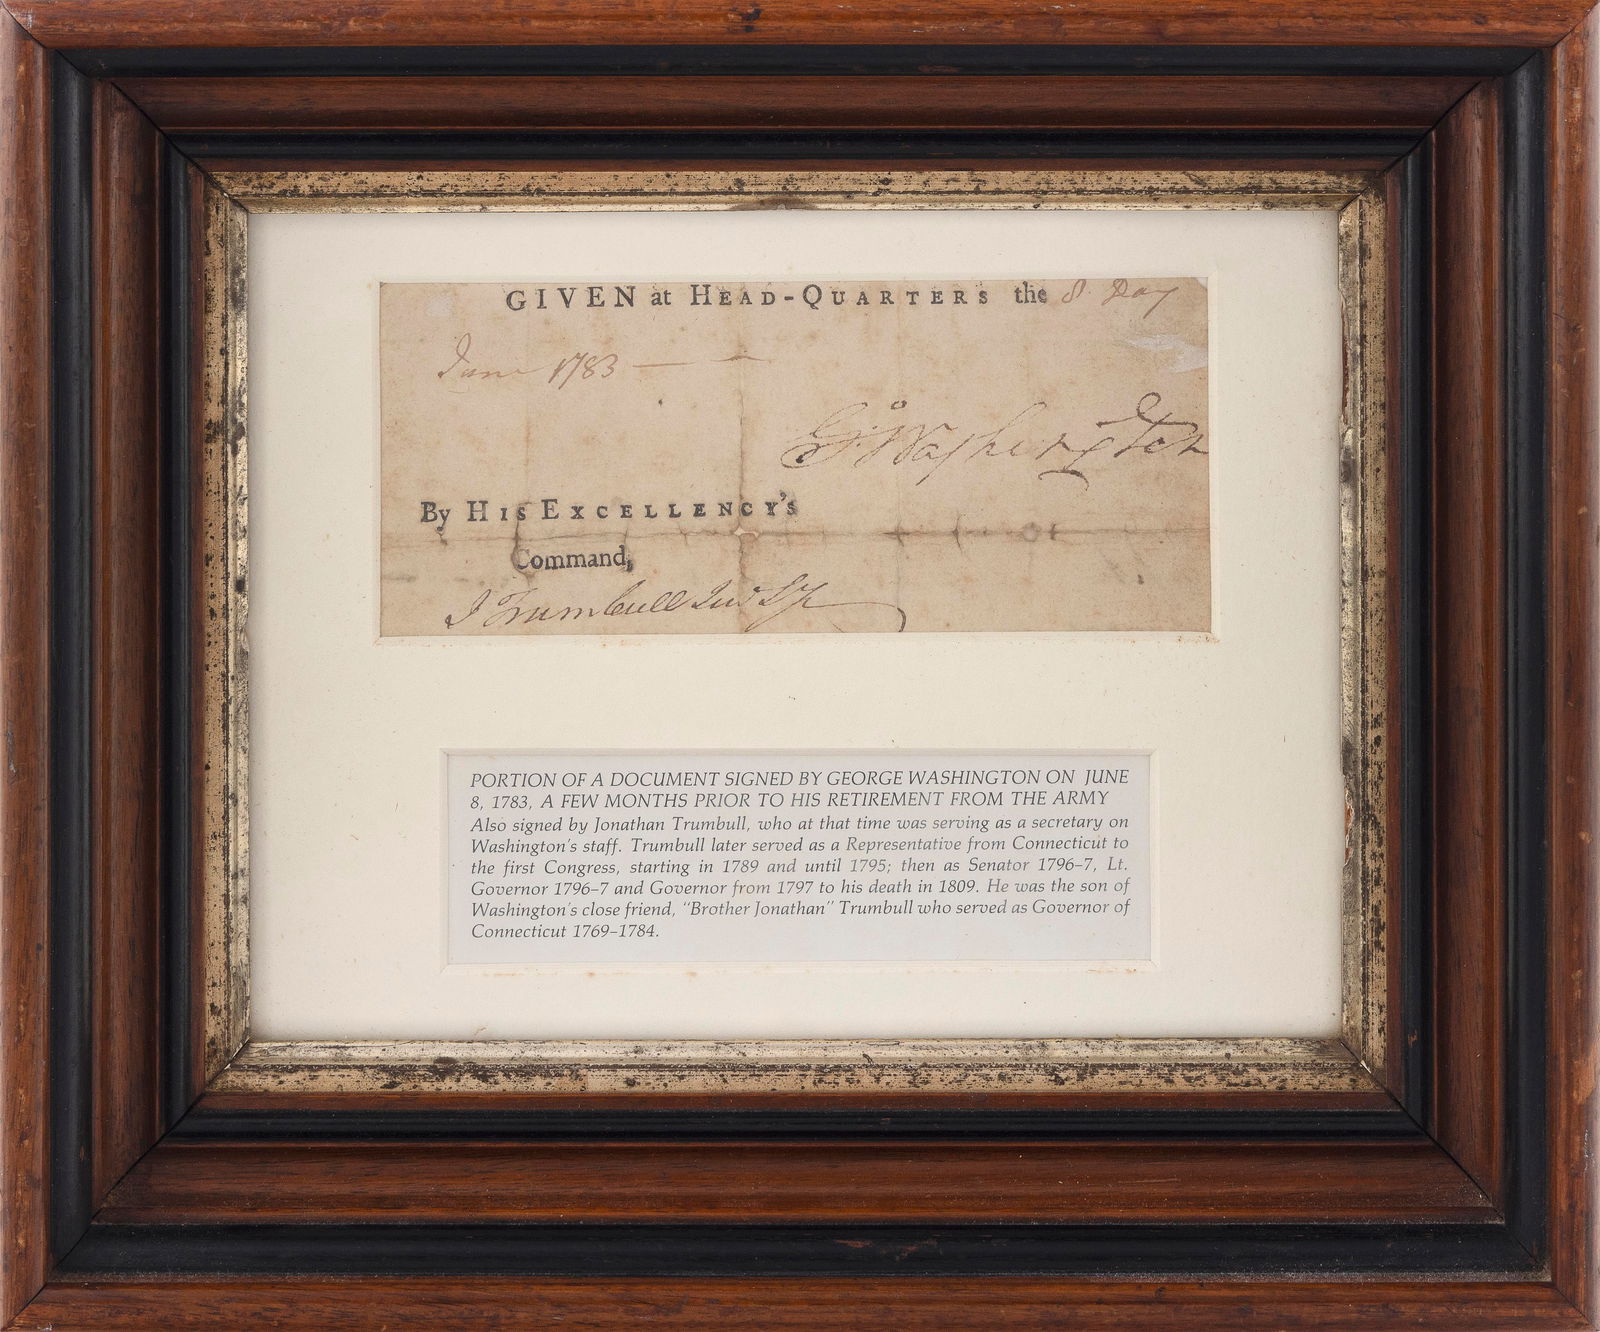 GIVEN at HEAD-QUARTERS the 8 Day
June 1783
Go: Washington
By HIS EXCELLENCY'S
Command,
J Trumbull Jun Sy
PORTION OF A DOCUMENT SIGNED BY GEORGE WASHINGTON ON JUNE
8, 1783, A FEW MONTHS PRIOR TO HIS RETIREMENT FROM THE ARMY
Also signed by Jonathan Trumbull, who at that time was serving as a secretary on
Washington's staff. Trumbull later served as a Representative from Connecticut to
the first Congress, starting in 1789 and until 1795; then as Senator 1796–7, Lt.
Governor 1796–7 and Governor from 1797 to his death in 1809. He was the son of
Washington's close friend, "Brother Jonathan" Trumbull who served as Governor of
Connecticut 1769–1784.